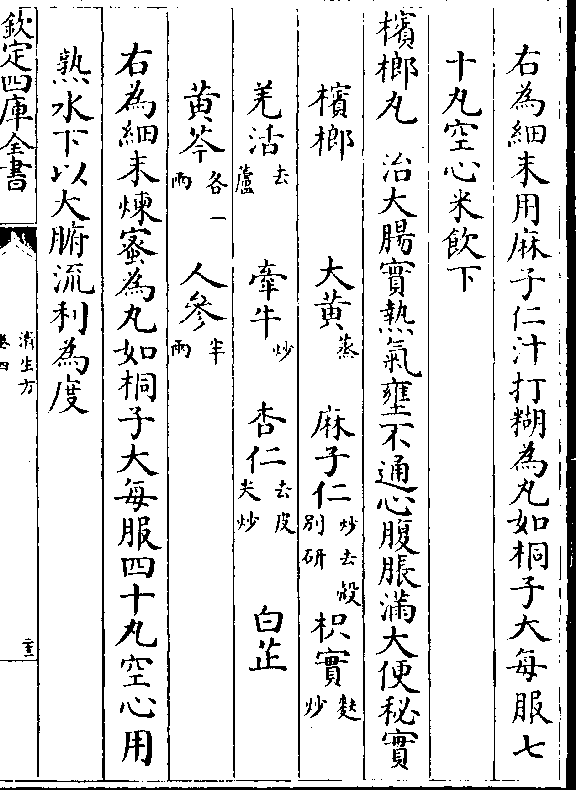 右為細末用麻子仁汁打糊為丸如桐子大每服七
十丸空心米飲下
檳榔丸　治大腸實熱氣壅不通心腹脹滿大便秘實
檳榔　大黃蒸　麻子仁炒去殼別研　枳實麩炒
羌活去蘆　牽牛炒　杏仁去皮尖炒　白芷
黃芩各一兩　人參半兩
右為細末煉蜜為丸如桐子大每服四十丸空心用
熟水下以大腑流利為度
欽定四庫全書
濟生方
卷四